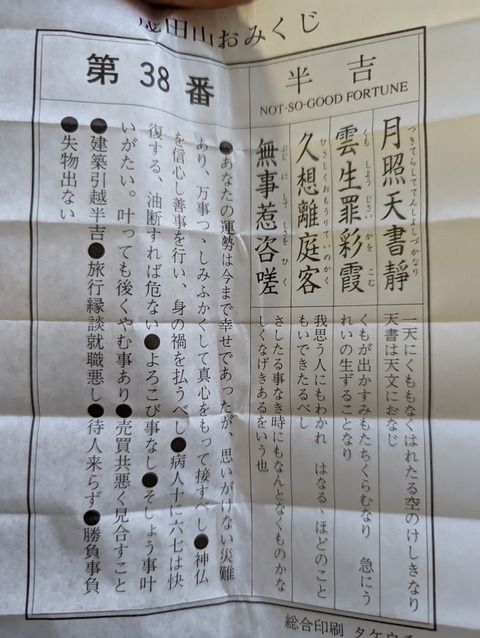 田山おみくじ
第38番
半吉
NOT-SO-GOOD FORTUNE
月照天書静
つきてらしててんしよしづかなり
一天にくももなくはれたる空のけしきなり
天書は天文におなじ
雲生罪彩霞
くもしようじざいかをこむ
くもが出かすみもたちくらむなり 急にう
れいの生ずることなり
久想離庭客
ひさしくおもうりていのかく
我思う人にもわかれ はなる、ほどのこと
もいできたるべし
無事惹咨嗟
ぶじにしてしさをひく
さしたる事なき時にもなんとなくものかな
しくなげきあるをいう也
●あなたの運勢は今まで幸せであったが、思いがけない災難
あり、万事つゝしみふかくして真心をもって接すべし●神仏
を信心し善事を行い、身の禍を払うべし●病人十に六七は快
復する、油断すれば危ない●よろこび事なし●そしょう事叶
いがたい。叶っても後くやむ事あり●売買共悪く見合すこと
●建築引越半吉●旅行縁談就職悪し●待人来らず●勝負事負
●失物出ない
総合印刷